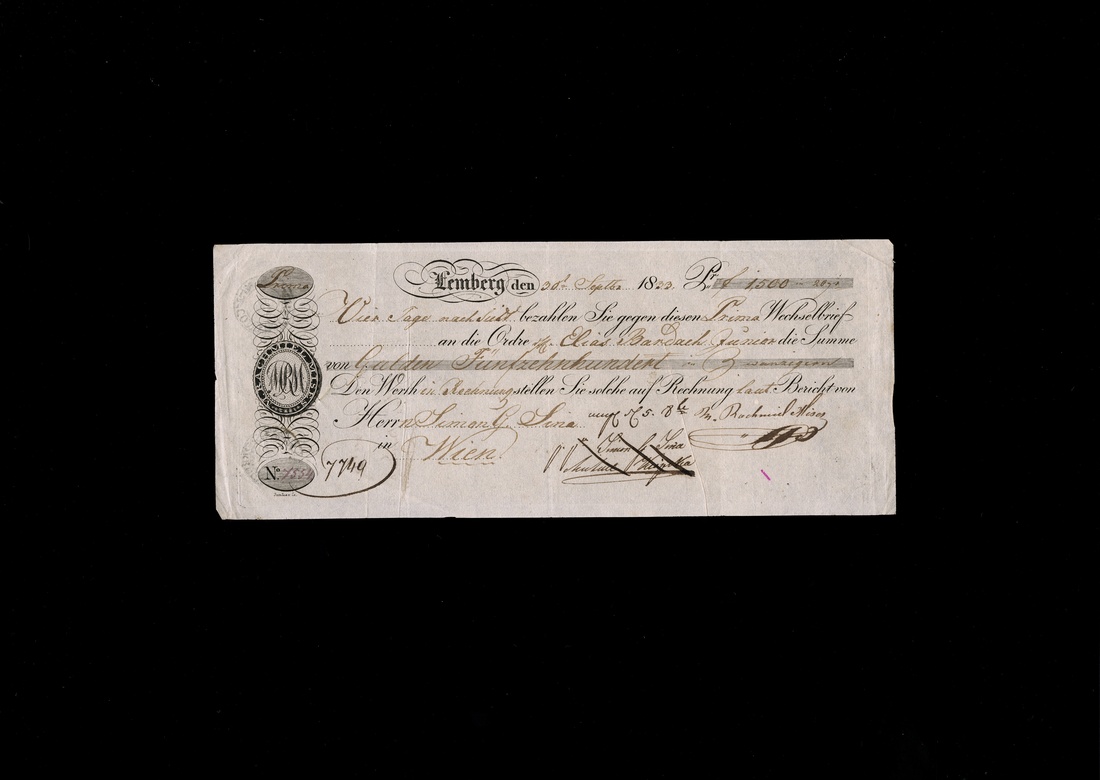 Prima
Lemberg den 30t Septbr 1833 Pr f 1500
Vier Tage nach Sicht bezahlen Sie gegen diesen Prima Wechselbrief
an die Ordre H Elias Bardach Junior die Summe
von Gulden Fünfzehnhundert in Zwanzigern
Den Werth in Rechnung stellen Sie solche auf Rechnung laut Bericht von
Herrn Simon G. Sina
in Wien
M. Rachmiel Mises
Simon G. Sina
M. RACHMIEL MISES
MRM
No.
7749